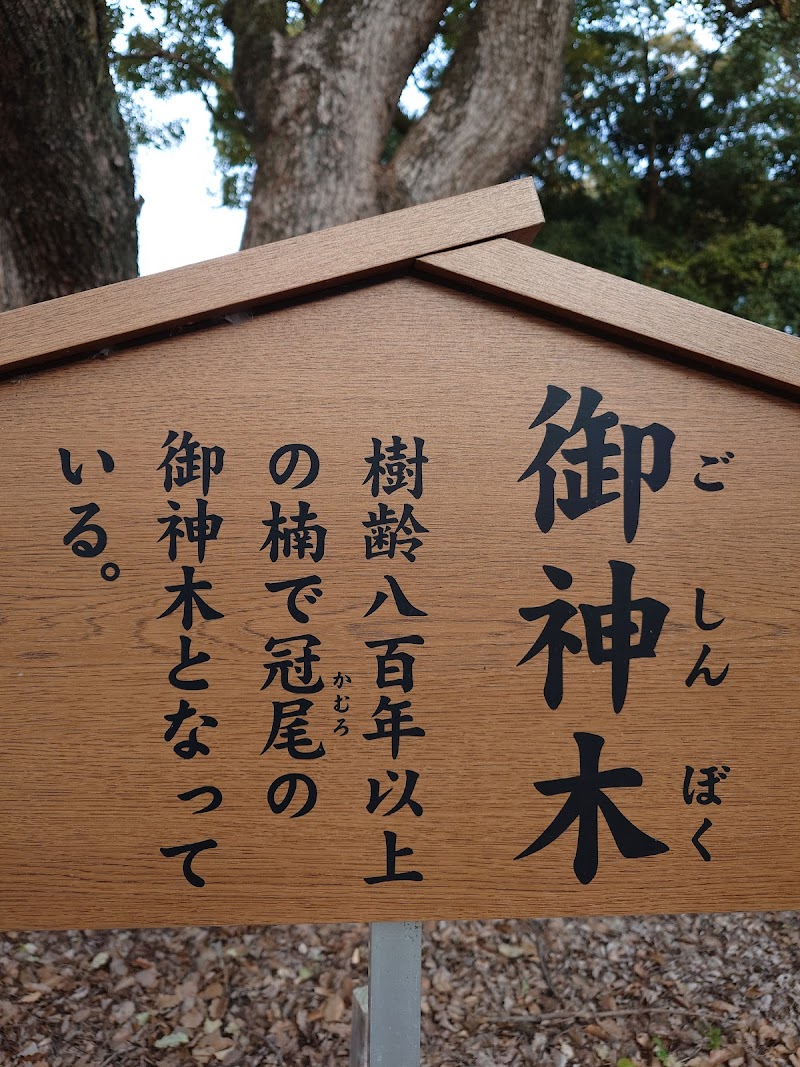 御神木
ごしんぼく
樹齢八百年以上
の楠で冠尾の
かむろ
御神木となって
いる。